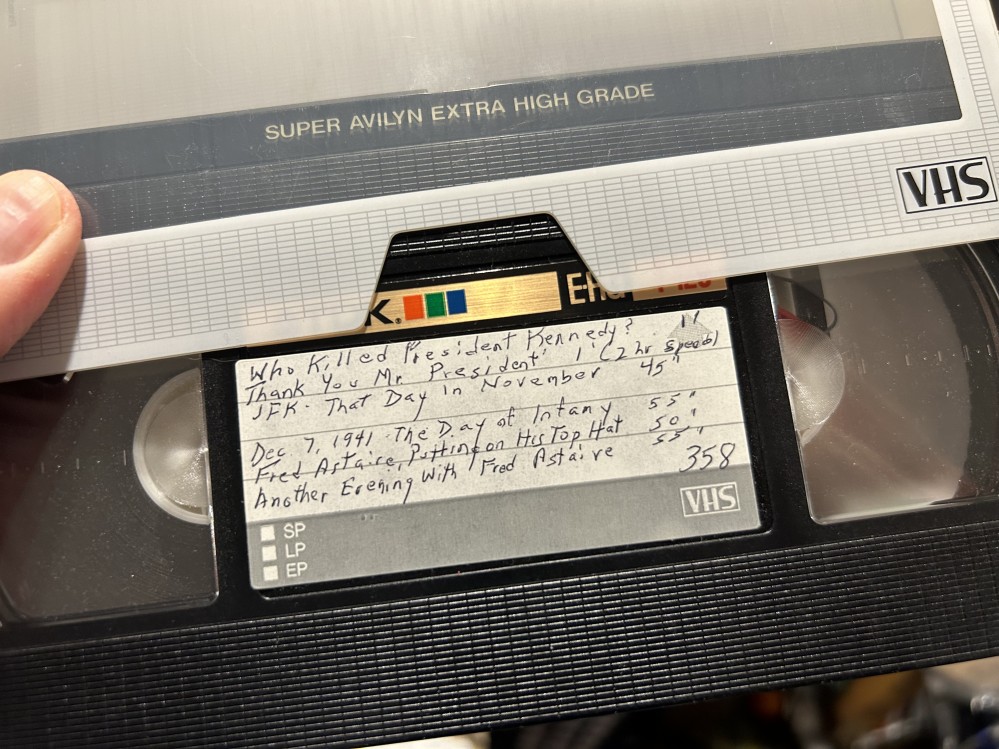 SUPER AVILYN EXTRA HIGH GRADE
VHS
K. E-HG
Who Killed President Kennedy? 1'
Thank You Mr. President 1' (2 hr speed)
JFK - That Day in November 45"
Dec 7, 1941 - The Day of Infany 55"
Fred Astaire, Putting on His Top Hat 50"
Another Evening With Fred Astaire 55"
358
VHS
SP
LP
EP